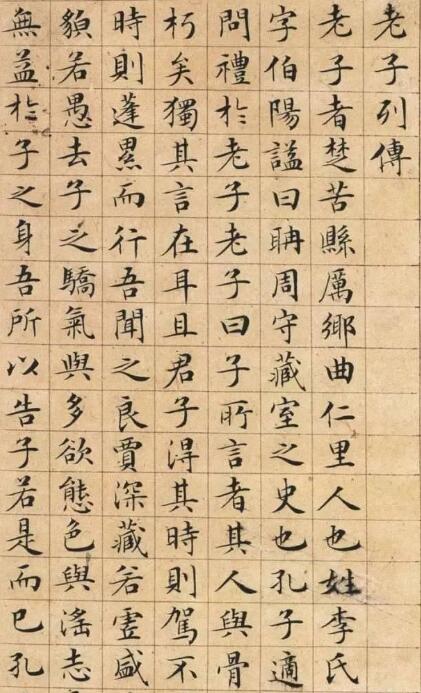 老子列傳
老子者楚苦縣厲鄉曲仁里人也姓李氏
字伯陽謚曰聃周守藏室之史也孔子適
問禮於老子老子曰子所言者其人與骨
朽矣獨其言在耳且君子得其時則駕不
時則蓬累而行吾聞之良賈深藏若虛盛
貌若愚去子之驕氣與多欲態色與淫志
無益於子之身吾所以告子若是而已孔